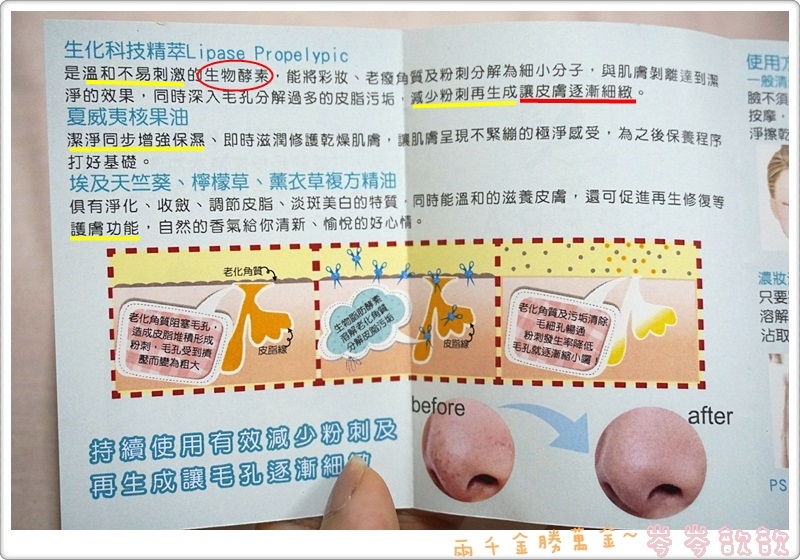 生化科技精萃Lipase Propelypic
是溫和不易刺激的生物酵素，能將彩妝、老廢角質及粉刺分解為細小分子，與肌膚剝離達到潔
淨的效果，同時深入毛孔分解過多的皮脂污垢，減少粉刺再生成讓皮膚逐漸細緻。
夏威夷核果油
潔淨同步增強保濕、即時滋潤修護乾燥肌膚，讓肌膚呈現不緊繃的極淨感受，為之後保養程序
打好基礎。
埃及天竺葵、檸檬草、薰衣草複方精油
俱有淨化、收斂、調節皮脂、淡斑美白的特質，同時能溫和的滋養皮膚，還可促進再生修復等
護膚功能，自然的香氣給你清新、愉悅的好心情。
老化角質
老化角質阻塞毛孔，
造成皮脂堆積形成
粉刺，毛孔受到擠
壓而變為粗大
皮脂線
生物脂肪酵素
溶解老化角質
分解皮脂污垢
皮脂線
老化角質及污垢清除
毛細孔暢通
粉刺發生率降低
毛孔就逐漸縮小囉
持續使用有效減少粉刺及
再生成讓毛孔逐漸細緻
before
after
使用方
一般清
臉不須
按摩，
淨擦乾
濃妝
只要
溶解
沾取
PS
兩千金勝萬金~岑岑歆歆